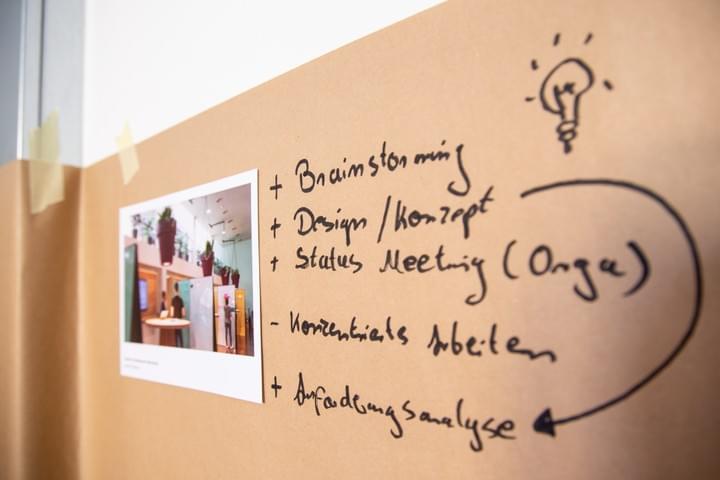 + Brainstorming
+ Design / Konzept
+ Status Meeting (Orga)
- Konzentriertes Arbeiten
+ Anforderungsanalyse